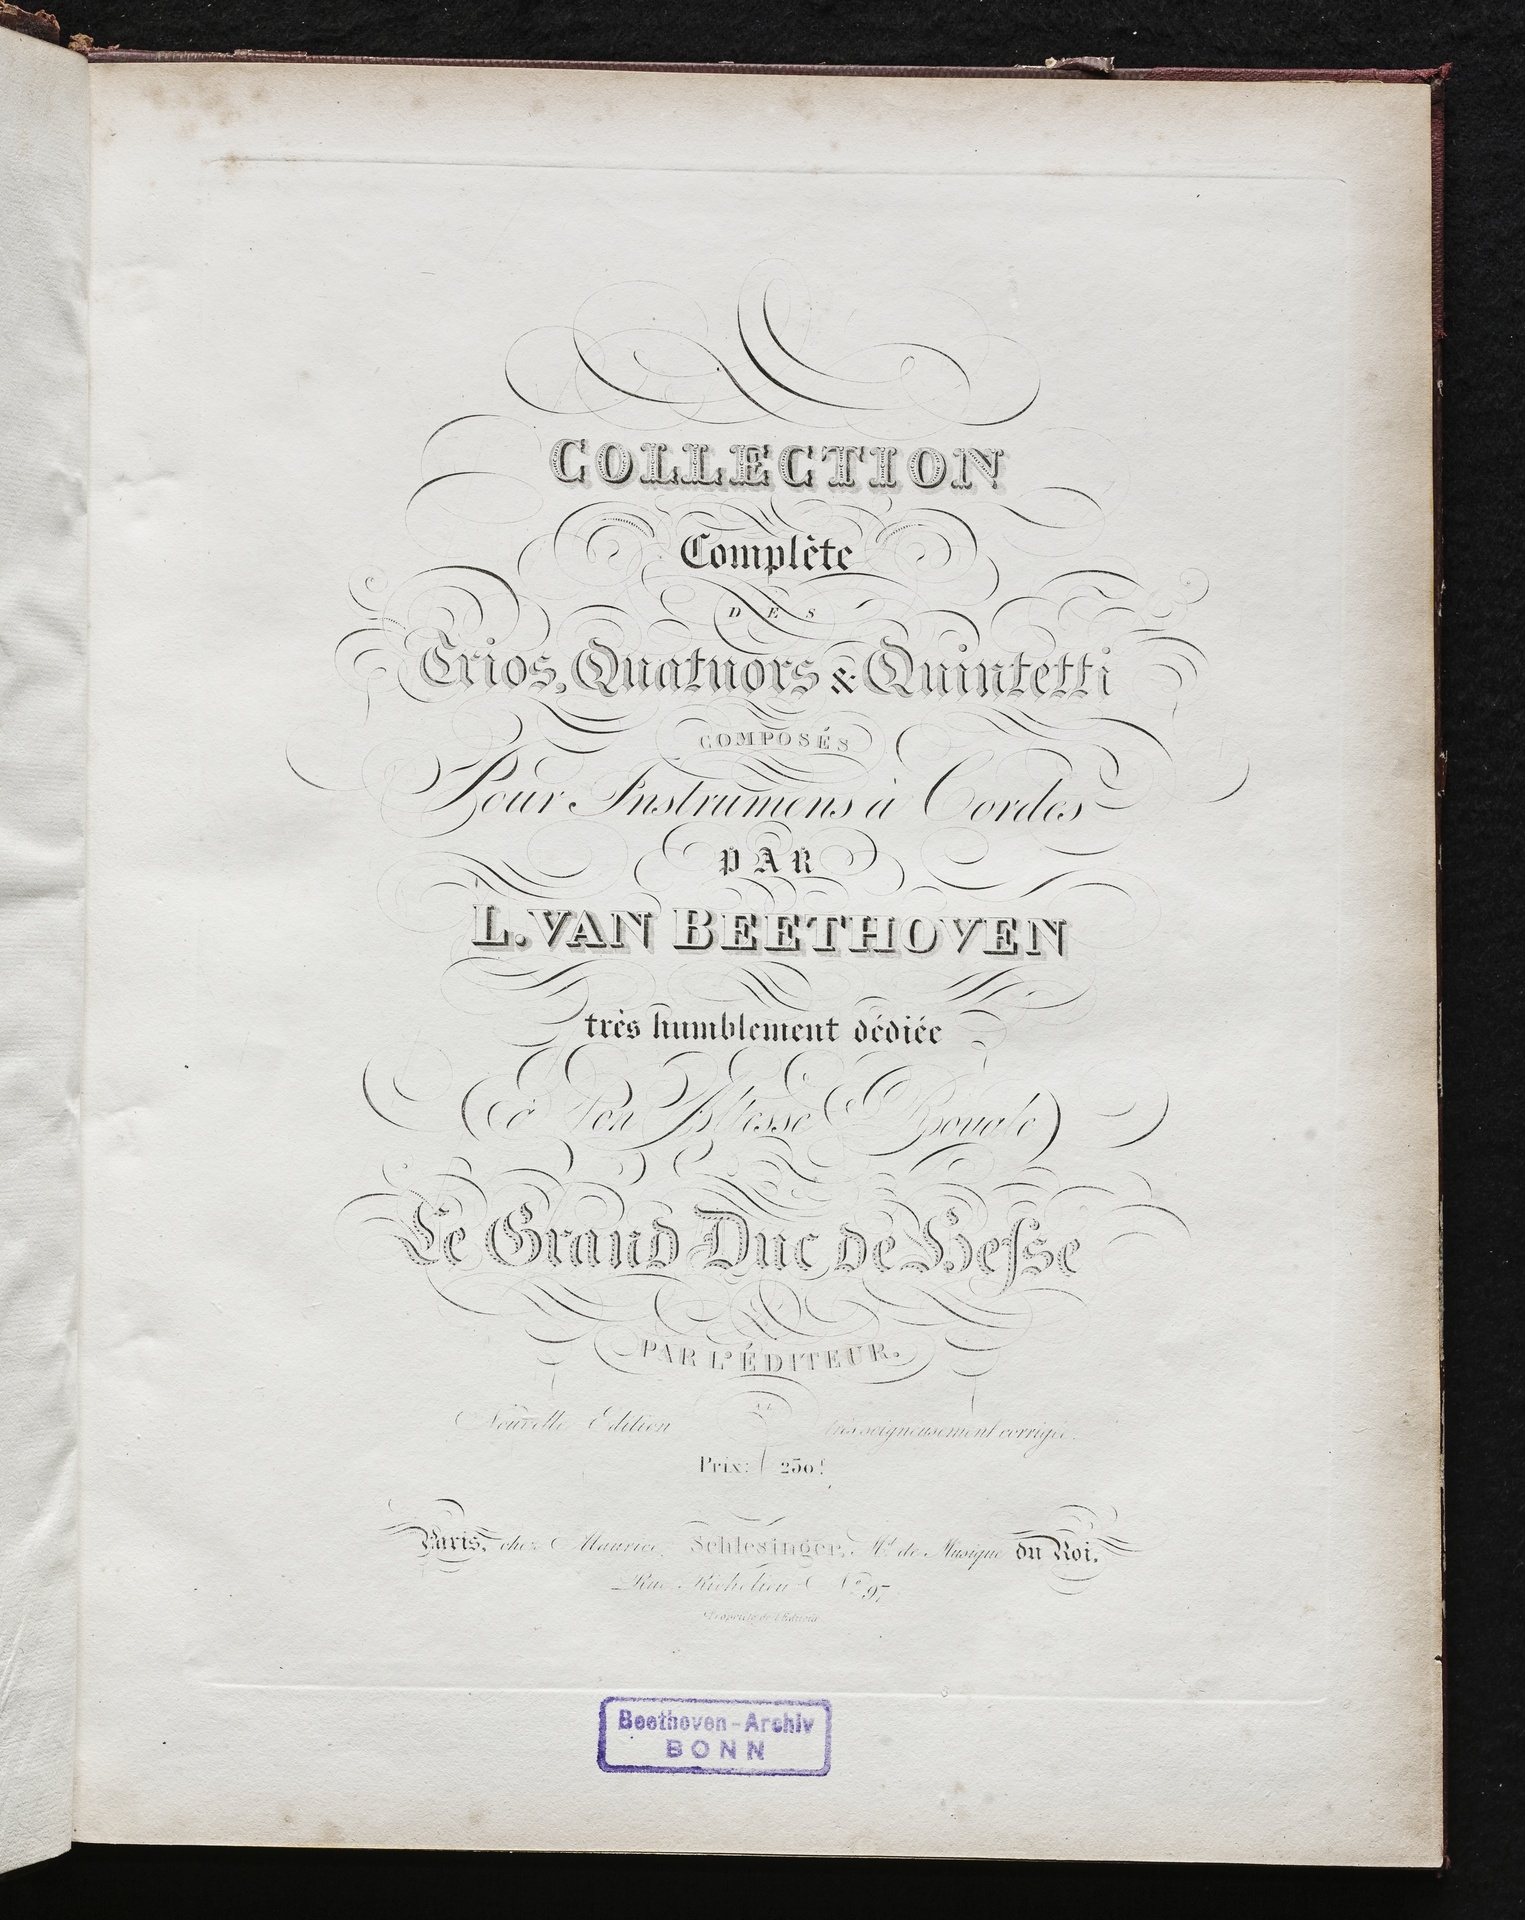 COLLECTION
Complète
DES
Trios, Quatuors & Quintetti
COMPOSÉS
Pour Instrumens à Cordes
PAR
L. VAN BEETHOVEN
très humblement dédiée
à Son Altesse Royale
Le Grand Duc de Hesse
PAR L'ÉDITEUR.
Nouvelle Edition très soigneusement corrigée.
Prix: 250f
Paris, chez Maurice Schlesinger, Md. de Musique du Roi.
Rue Richelieu No. 97
Propriété de l'Editeur
Beethoven-Archiv
BONN